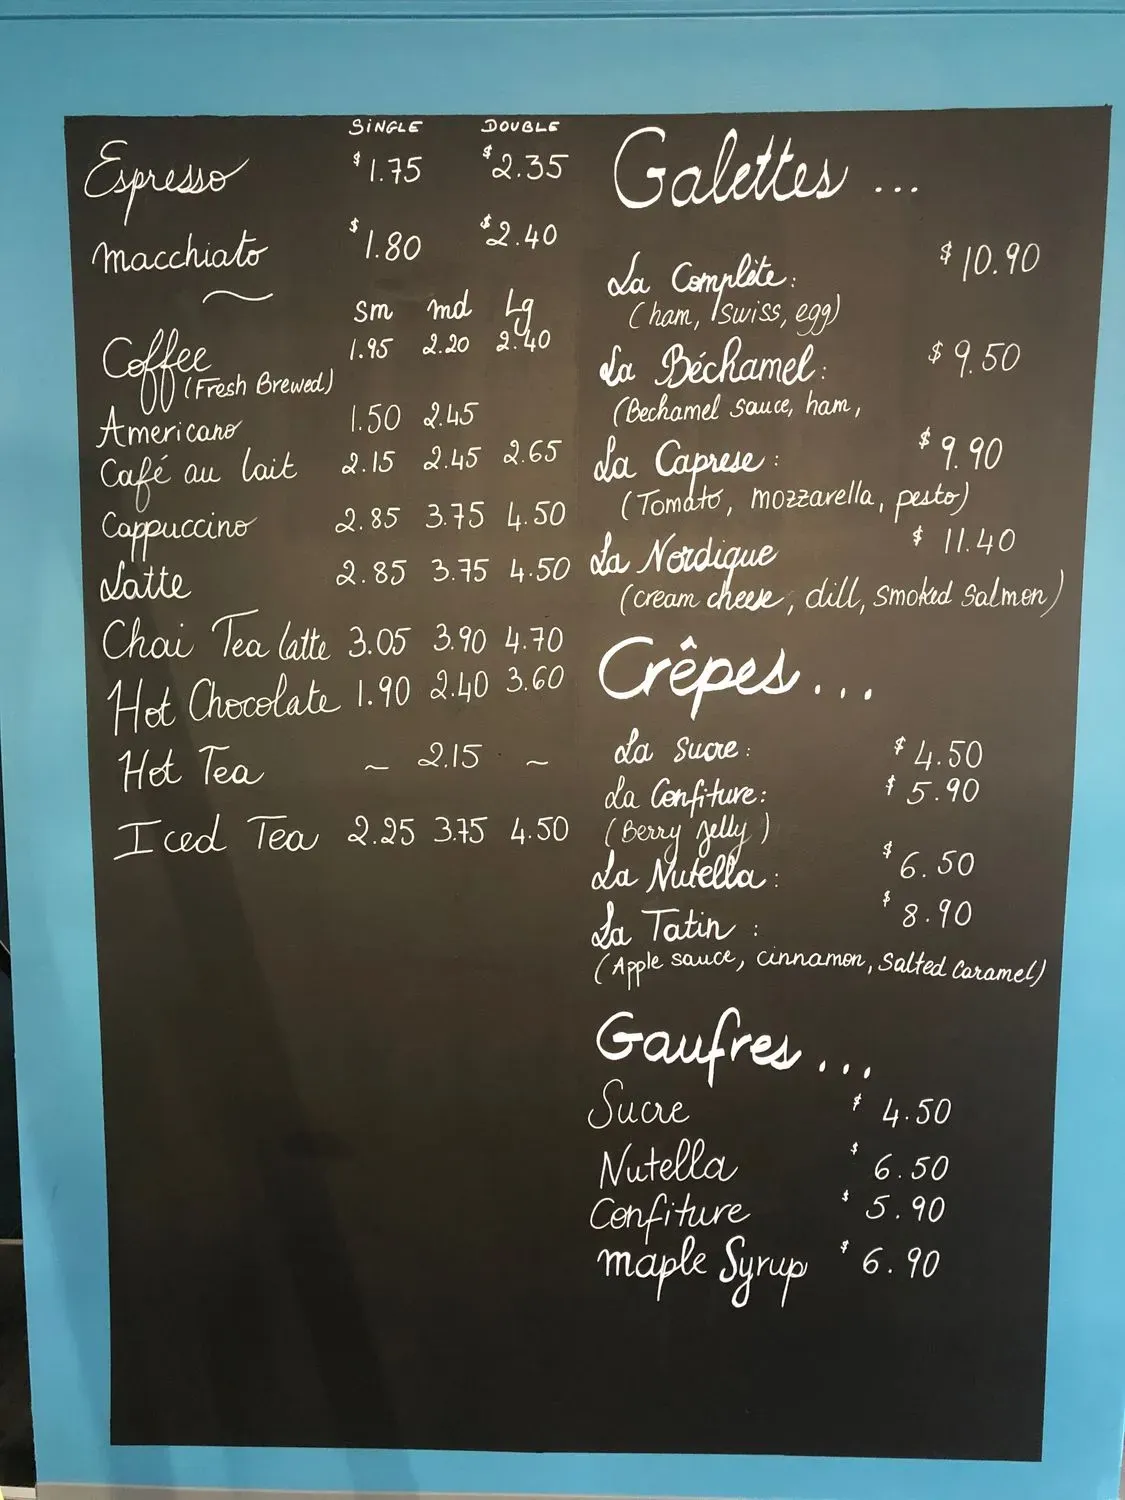 SINGLE DOUBLE
Espresso $1.75 $2.35
macchiato $1.80 $2.40
sm md Lg
Coffee 1.95 2.20 2.40
(Fresh Brewed)
Americano 1.50 2.45
Café au lait 2.15 2.45 2.65
Cappuccino 2.85 3.75 4.50
Latte 2.85 3.75 4.50
Chai Tea latte 3.05 3.90 4.70
Hot Chocolate 1.90 2.40 3.60
Hot Tea ~ 2.15 ~
Iced Tea 2.25 3.75 4.50
Galettes ...
La Complète: $10.90
(ham, swiss, egg)
La Béchamel: $9.50
(Bechamel sauce, ham,
La Caprese: $9.90
(Tomato, mozzarella, pesto)
La Nordique $11.40
(cream cheese, dill, smoked salmon)
Crêpes...
La Sucre: $4.50
La Confiture: $5.90
(Berry Jelly)
La Nutella: $6.50
La Tatin: $8.90
(Apple sauce, cinnamon, salted caramel)
Gaufres...
Sucre $4.50
Nutella $6.50
Confiture $5.90
maple Syrup $6.90